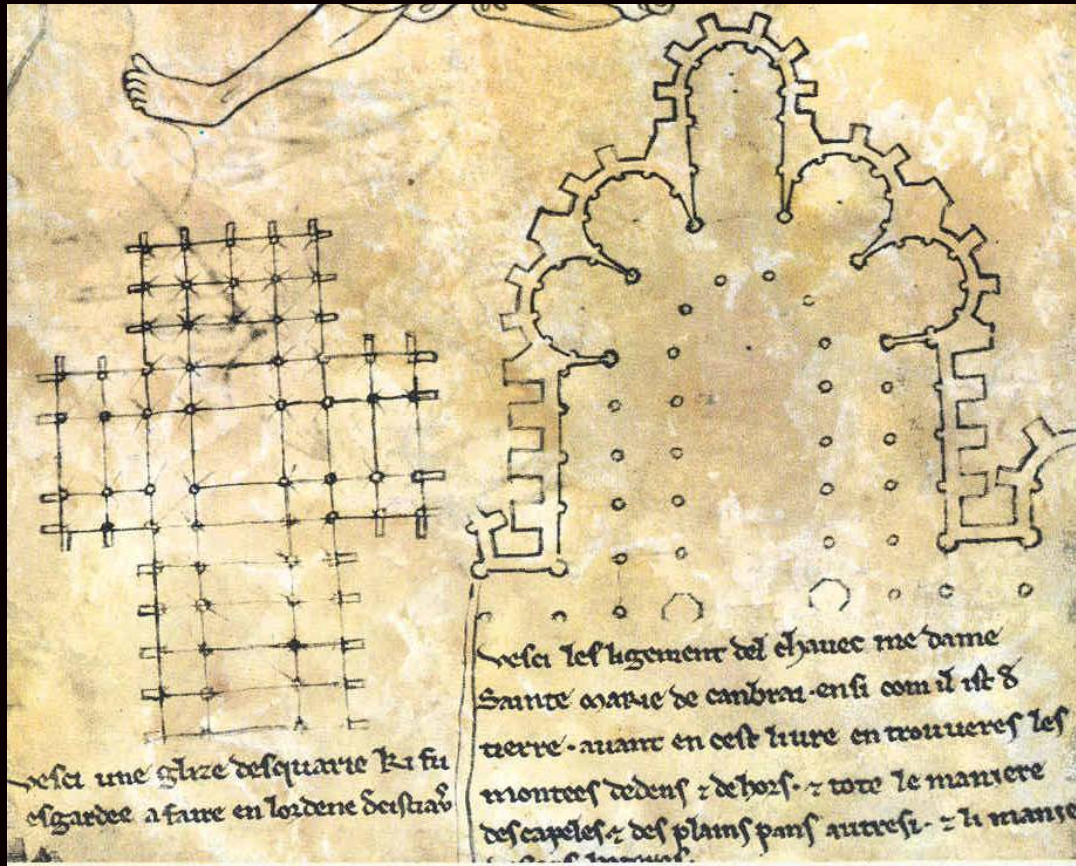 vesci une glize desquarie ki fu
esgardee a faire en lordene
vesci les ligement del chavec me dame
Sainte marie de canbrai · ensi com il ist d
tierre · avant en cest livre en trouveres les
montees dedens ⁊ dehors · ⁊ tote le maniere
des capeles ⁊ des plains pans autresi · ⁊ li manie